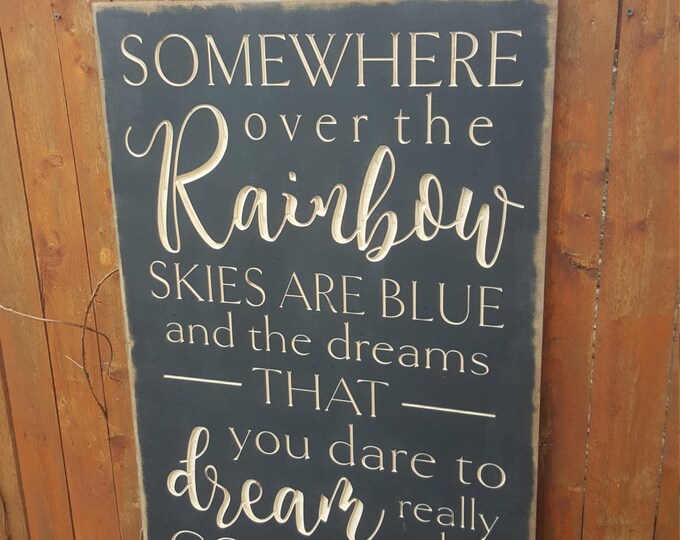 SOMEWHERE
over the
Rainbow
SKIES ARE BLUE
and the dreams
THAT
you dare to
dream really